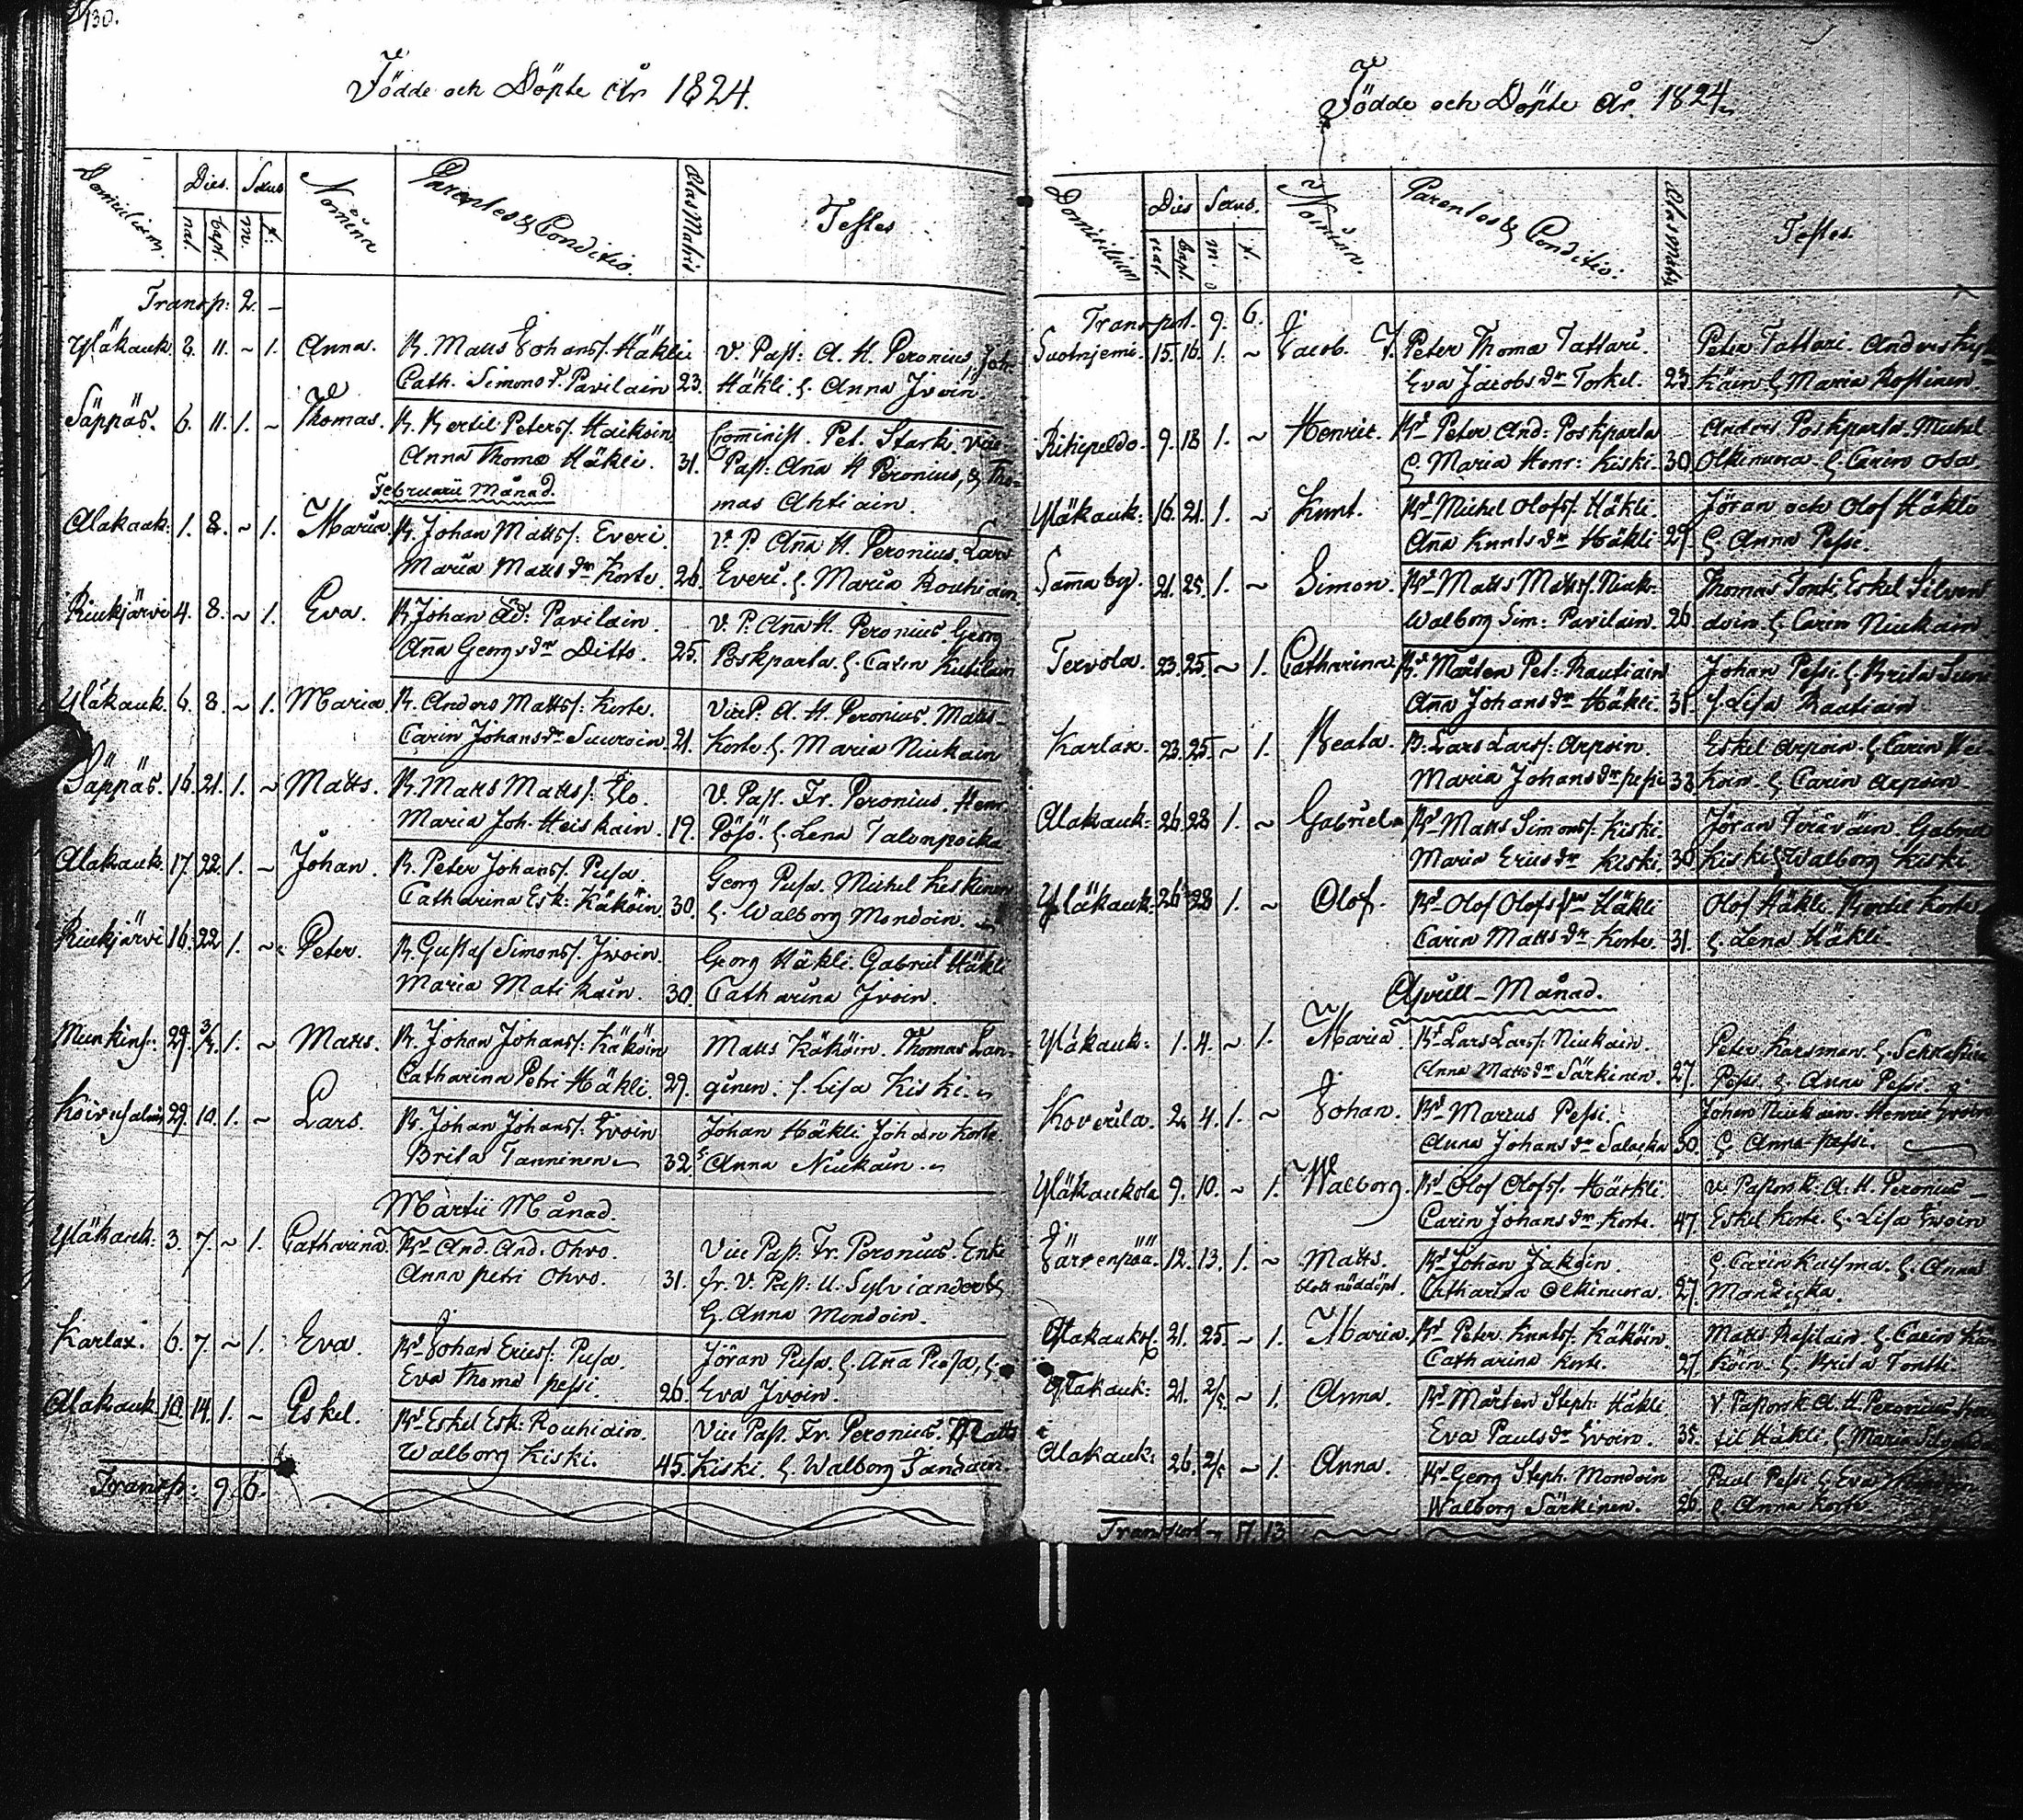 130.
Födde och Döpte År 1824.
Domicilium. Dies. Sexus Nomina Parentes & Conditio. Ætas Matris Testes
nat. bapt. m. f.
Transp: 2. –
Yläkauk. 8. 11. ~ 1. Anna. B. Matts Johanss. Häkli V. Past: A. H. Peronius, Joh.
Cath. Simonsd. Pavilain 23. Häkli. & Anna Ivoin.
Säppäs. 6. 11. 1. ~ Thomas. B. Bertil Peterss. Haikoin Comminist. Pet. Stark. Vice
Anna Thomæ Häkli. 31. Past: Anna H Peronius, & Tho=
mas Ahtiain.
Februarii Månad.
Alakauk: 1. 8. ~ 1. Maria. B. Johan Mattss: Everi. V. P. Anna H. Peronius. Lars
Maria Matts dr Korte. 26. Everi. & Maria Rouhiain.
Riukjärvi 4. 8. ~ 1. Eva. B. Johan Ad: Pavilain. V. P. Anna H. Peronius. Georg
Anna Georgs dr Ditto. 25. Poskparta. & Carin Kutilain
Yläkauk. 6. 8. ~ 1. Maria. B. Anders Mattss: Korte. Vice P. A. H. Peronius. Matts
Carin Johans dr Suuroin 21. Korte. & Maria Niukain
Säppäs. 16. 21. 1. ~ Matts. B. Matts Mattss: Ilo. V. Past. Fr. Peronius. Henr.
Maria Joh. Heiskain. 19. Pösö. & Lena Talonpoika
Alakauk. 17. 22. 1. ~ Johan. B. Peter Johanss. Pusa. Georg Pusa. Michel Keskinen
Catharina Esk: Käköin. 30. & Walborg Mondoin.
Riukjärvi 16. 22. 1. ~ Peter. B. Gustaf Simonss. Ivoin. Georg Häkli. Gabriel Häkli
Maria Matikain. 30. Catharina Ivoin.
Munkins. 29. 3/4. 1. ~ Matts. B. Johan Johanss: Käköin Matts Käköin. Thomas Lan=
Catharina Petri Häkli. 29. ginen: & Lisa Kiski.
Koivusalm. 29. 10. 1. ~ Lars. B. Johan Johanss: Ivoin Johan Häkli. Johan Korte.
Brita Tanninen 32. & Anna Niukain.
Martii Månad.
Yläkauk: 3. 7. ~ 1. Catharina. Bd. And. And. Ohvo. Vice Past. Fr. Peronius. Enke
Anna Petri Ohvo. 31. fr. V. Past: U. Sylviander &
& Anna Mondoin.
Karlax. 6. 7. ~ 1. Eva. Bd. Johan Ericss. Pusa. Jöran Pusa. & Anna Pusa, &
Eva Thomæ Pessi. 26. Eva Ivoin.
Alakauk 10. 14. 1. ~ Eskel. Bd. Eskel Esk: Rouhiain. Vice Past. Fr. Peronius. Matts
Walborg Kiski. 45. Kiski. & Walborg Sandain
Transp: 9. 6.
Födde och Döpte År 1824.
Domicilium Dies Sexus. Nomina. Parentes & Conditio: Ætas Matris Testes.
nat. bapt. m. f.
Transport. 9. 6.
Suotnjemi. 15. 16. 1. ~ Jacob. F. Peter Thomæ Tattari. Peter Tattari. Anders
Eva Jacobs dr Torkel. 23. käin & Maria Rostinen.
Riihipeldo. 9. 18 1. ~ Henric. Bd. Peter And: Poskparta Anders Poskparta. Michel
& Maria Henr: Kiski. 30. Olkinuora. & Carin Osa.
Yläkauk: 16. 21. 1. ~ Knut. Bd. Michel Olofss. Häkli. Jöran och Olof Häkli
Anna Knuts dr Häkli 29. & Anna Pessi.
Samma by. 21. 25. 1. ~ Simon. Bd. Matts Mattss. Niuk: Thomas Tonti, Eskel Silven
Walborg Sim: Pavilain. 26 doin & Carin Niukain
Tervola. 23. 25. ~ 1. Catharina. Bd. Mårten Pet: Rautiain Johan Pessi. & Brita
Anna Johans dr Häkli. 31. & Lisa Rautiain
Karlax. 23. 25. ~ 1. Beata. B. Lars Larss: Arpoin. Eskel Arpoin. & Carin
Maria Johans dr Pessi 33 & Carin Arpoin.
Alakauk: 26. 28 1. ~ Gabriel. Bd. Matts Simonss: Kiski. Jöran Teräväin. Gabriel
Maria Erics dr Kiski. 30 Kiski & Walborg Kiski.
Yläkauk: 26. 28 1. ~ Olof. Bd. Olof Olofs son Häkli Olof Häkli, Bertil Korte
Carin Matts dr Korte. 31. & Lena Häkli.
Aprill – Månad.
Yläkauk: 1. 4. ~ 1. Maria. Bd. Lars Larss: Niukain. Peter Karsman. &
Anna Matts dr Särkinen. 27. Pessi. & Anna Pessi
Koverila. 2. 4. 1. ~ Johan. Bd. Marcus Pessi. Johan Niukain. Henric Ivoin
Anna Johans dr Salacka 30. & Anna Pessi.
Yläkaukola 9. 10. ~ 1. Walborg. Bd. Olof Olofss. Häkli. V. Pastorsk: A. H. Peronius
Carin Johans dr Korte. 47. Eskel Korte. & Lisa Ivoin
Järvenpää. 12. 13. 1. ~ Matts. Bd. Johan Jakoin. & Carin Kaisma. & Anna
blott nöddöpt. Catharina Olkinuora. 27. Mandicka.
Alakauks. 21. 25. ~ 1. Maria. Bd. Peter Knutss: Käköin. Matts Rasilain. & Carin Kä
Catharina Korte. 27. köin. & Brita Tontti
Alakauk: 21. 2/5. ~ 1. Anna. Bd. Mårten Steph: Häkli V. Pastorsk A. H. Peronius.
Eva Pauls dr Ivoin. 35. til Häkli. & Maria
Alakauk: 26. 2/5 ~ 1. Anna. Bd. Georg Steph. Mondoin Paul Pessi & Eva
Walborg Särkinen. 26 & Anna Korte
Transport 17. 13